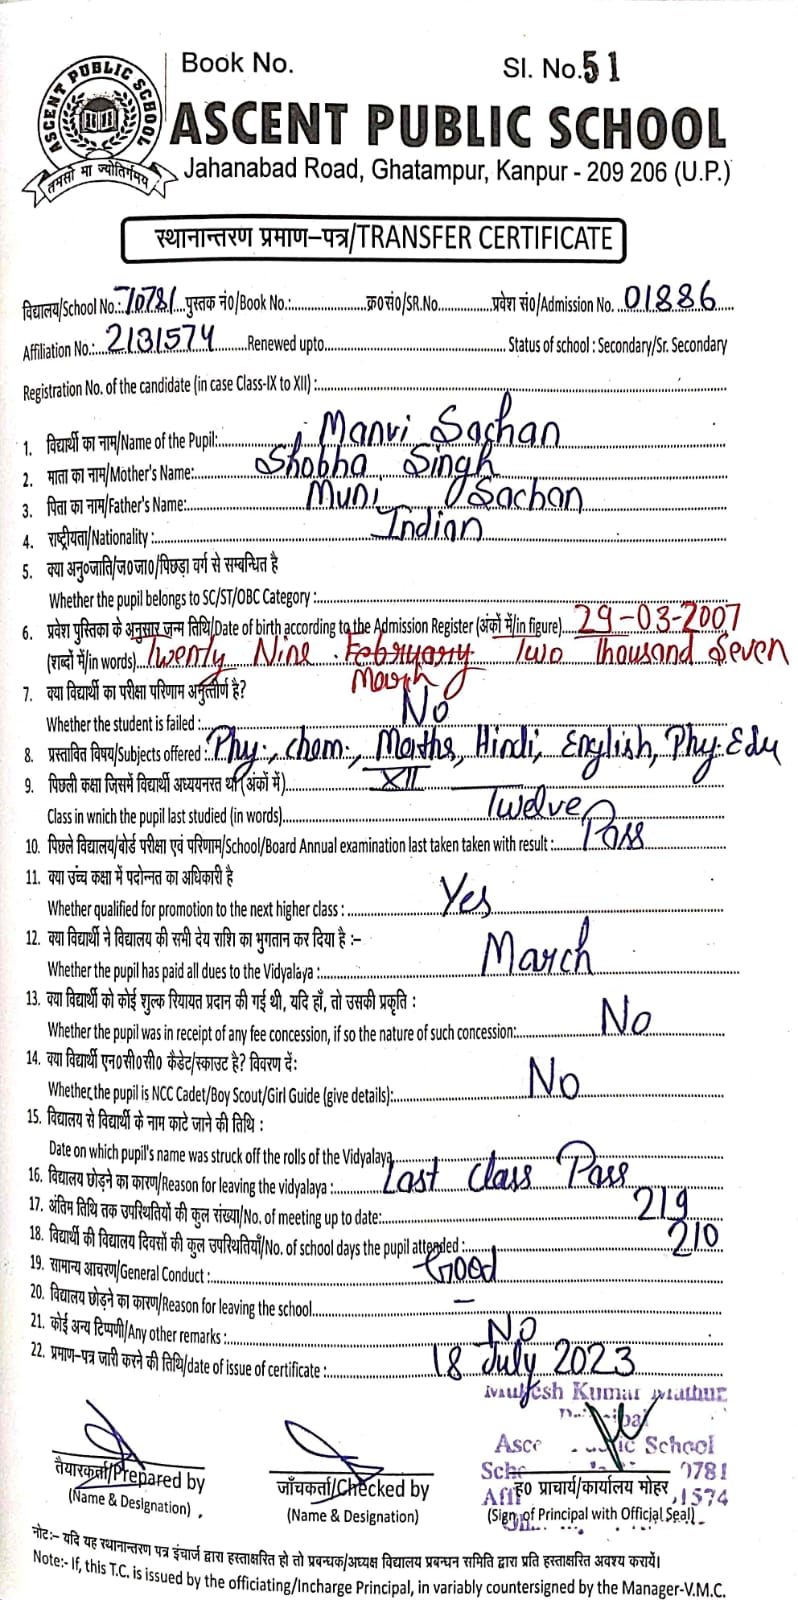 ASCENT PUBLIC SCHOOL
तमसो मा ज्योतिर्गमय
Book No. Sl. No. 51
ASCENT PUBLIC SCHOOL
Jahanabad Road, Ghatampur, Kanpur - 209 206 (U.P.)
स्थानान्तरण प्रमाण-पत्र/TRANSFER CERTIFICATE
विद्यालय/School No.: 70781 पुस्तक नं०/Book No.: क्र०सं०/SR.No. प्रवेश सं०/Admission No. 01886
Affiliation No.: 2131574 Renewed upto Status of school : Secondary/Sr. Secondary
Registration No. of the candidate (in case Class-IX to XII) :
1. विद्यार्थी का नाम/Name of the Pupil: Manvi Sachan
2. माता का नाम/Mother's Name: Shobha Singh
3. पिता का नाम/Father's Name: Muni Sachan
4. राष्ट्रीयता/Nationality : Indian
5. क्या अनु०जाति/ज०जा०/पिछड़ा वर्ग से सम्बन्धित है
Whether the pupil belongs to SC/ST/OBC Category :
6. प्रवेश पुस्तिका के अनुसार जन्म तिथि/Date of birth according to the Admission Register (अंकों में/in figure) 29-03-2007
(शब्दों में/in words) Twenty Nine February Two Thousand Seven
March
7. क्या विद्यार्थी का परीक्षा परिणाम अनुत्तीर्ण है?
Whether the student is failed : No
8. प्रस्तावित विषय/Subjects offered : Phy., chem., Maths, Hindi, English, Phy. Edu
9. पिछली कक्षा जिसमें विद्यार्थी अध्ययनरत था (अंकों में) XII
Class in wnich the pupil last studied (in words) Twelve
10. पिछले विद्यालय/बोर्ड परीक्षा एवं परिणाम/School/Board Annual examination last taken taken with result : Pass
11. क्या उच्च कक्षा में पदोन्नत का अधिकारी है
Whether qualified for promotion to the next higher class : Yes
12. क्या विद्यार्थी ने विद्यालय की सभी देय राशि का भुगतान कर दिया है :-
Whether the pupil has paid all dues to the Vidyalaya : March
13. क्या विद्यार्थी को कोई शुल्क रियायत प्रदान की गई थी, यदि हाँ, तो उसकी प्रकृति :
Whether the pupil was in receipt of any fee concession, if so the nature of such concession: No
14. क्या विद्यार्थी एन०सी०सी० कैडेट/स्काउट है? विवरण दें:
Whether the pupil is NCC Cadet/Boy Scout/Girl Guide (give details): No
15. विद्यालय से विद्यार्थी के नाम काटे जाने की तिथि :
Date on which pupil's name was struck off the rolls of the Vidyalaya
16. विद्यालय छोड़ने का कारण/Reason for leaving the vidyalaya : Last Class Pass
17. अंतिम तिथि तक उपस्थितियों की कुल संख्या/No. of meeting up to date: 219
18. विद्यार्थी की विद्यालय दिवसों की कुल उपस्थितियाँ/No. of school days the pupil attended : 210
19. सामान्य आचरण/General Conduct : Good
20. विद्यालय छोड़ने का कारण/Reason for leaving the school –
21. कोई अन्य टिप्पणी/Any other remarks : No
22. प्रमाण-पत्र जारी करने की तिथि/date of issue of certificate : 18 July 2023
Mukesh Kumar Mathur
School
0781
1574
तैयारकर्ता/Prepared by
(Name & Designation)
जाँचकर्ता/Checked by
(Name & Designation)
ह० प्राचार्य/कार्यालय मोहर
(Sign. of Principal with Official Seal)
नोट:- यदि यह स्थानान्तरण पत्र इंचार्ज द्वारा हस्ताक्षरित हो तो प्रबन्धक/अध्यक्ष विद्यालय प्रबन्धन समिति द्वारा प्रति हस्ताक्षरित अवश्य करायें।
Note:- If, this T.C. is issued by the officiating/Incharge Principal, in variably countersigned by the Manager-V.M.C.